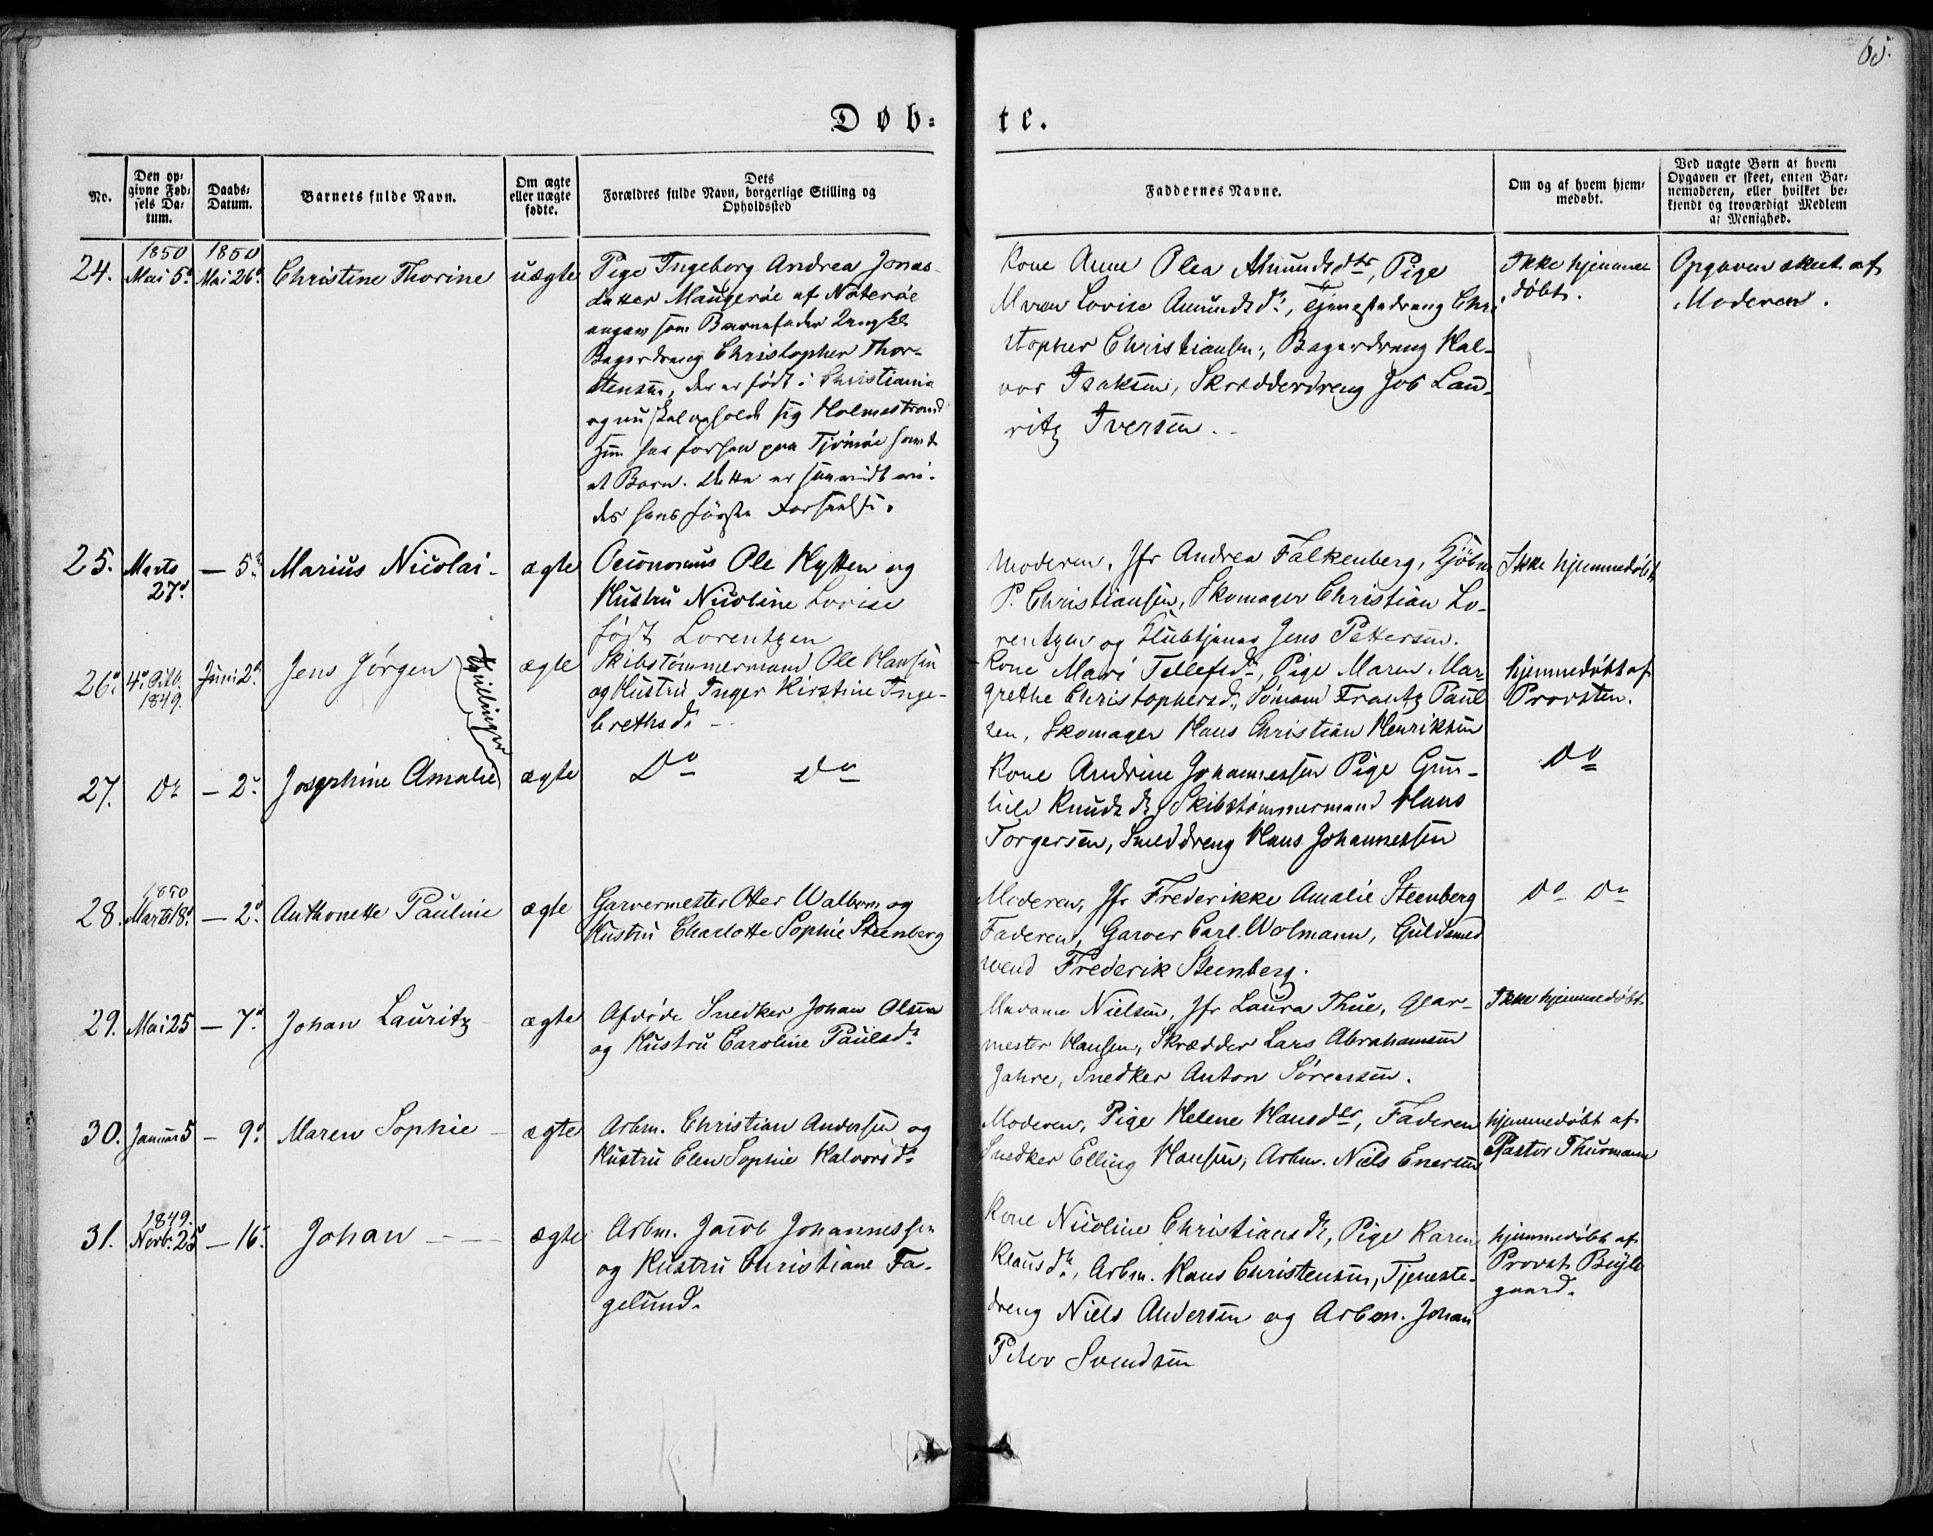 65.
Døb-
te.
No.
Den opgivne Fødsels Datum.
Daabs-Datum.
Barnets fulde Navn.
Om ægte eller uægte fødte.
Dets Forældres fulde Navn, borgerlige Stilling og Opholdssted
Faddernes Navne.
Om og af hvem hjemmedøbt.
Ved uægte Børn af hvem Opgaven er skeet, enten Barnemoderen, eller hvilket bekjendt og troværdigt Medlem af Menighed.
24.
1850
Mai 5.
1850
Mai 26.
Christine Thorine
uægte
Pige Ingeborg Andrea Jonas-
datter Maugerøe af Nøterøe
angav som Barnefader
Bagerdreng Christopher Thor-
stensen, der er født i Christiania
og nu skal opholde sig Holmestrand
Hun har forhen paa Tjömöe havt
et Barn. Dette er saavidt vi-
des hans første Forseelse.
Kone Anne Olea Amundsdtr, Pige
Maren Lovise Amundsdr, Tjenestedreng Chri
stopher Christiansen, Bagerdreng Hal-
vor Isaksen, Skrædderdreng Job Lau-
ritz Iversen.
Ikke hjemme
døbt.
Opgaven skeet af
Moderen.
25.
Marts
27.
— 5.
Marius Nicolai -
ægte
Oeconomus Ole Hytten og
Hustru Nicoline Lovise
født Lorentzen
Moderen, Jfr Andrea Falkenberg, Kjøbm
P. Christiansen, Skomager Christian Lo-
rentzen og Klubtjener Jens Pettersen.
Ikke hjemmedøbt
26.
4. Octb.
1849.
Juni 2.
Jens Jørgen
Tvillinger
ægte
Skibstømmermand Ole Hansen
og Hustru Inger Kirstine Inge-
brethsdr —
Kone Mari Tellefsdr, Pige Maren Mar
grethe Christophersdr, Sømand Frantz Paul
sen, Skomager Hans Christian Henriksen
hjemmedøbt af
Provsten.
27.
Do
— 2.
Josephine Amalie
ægte
Do Do
Kone Andrine Johannessen Pige Gun-
hild Knudsdr, Skibstømmermand Hans
Torgersen, Smeddreng Hans Johannessen
Do
28.
1850
Marts 18.
— 2.
Anthonette Pauline
ægte
Garvermester Otter Walbom og
Hustru Charlotte Sophie Steenberg
Moderen, Jfr Frederikke Amalie Steenberg
Faderen, Garver Carl Wolmann, Guldsmed
svend Frederik Steenberg.
Do Do
29.
Mai 25
— 7.
Johan Lauritz
ægte
Afdøde Snedker Johan Olsen
og Hustru Caroline Paulsdr
Madame Nielsen, Jfr Laura Thue, Glar-
mester Hansen, Skrædder Lars Abrahamsen
Jahre, Snedker Anton Sørensen.
Ikke hjemmedøbt
30.
Januar 5
— 9.
Maren Sophie —
ægte
Arbm. Christian Andersen og
Hustru Elen Sophie Halvorsdr
Moderen, Pige Helene Hansdtr, Faderen
Snedker Elling Hansen, Arbm. Niels Enersen
hjemmedøbt af
Pastor Thurmann
31.
1849.
Novb. 25
— 16.
Johan — — —
ægte
Arbm. Jacob Johannessen
og Hustru Christiane Fa-
gelund.
Kone Nicoline Christiansdr, Pige Karen
Klausdr, Arbm. Hans Christensen, Tjeneste-
dreng Niels Andersen og Arbm. Johan
Peter Svendsen
hjemmedøbt af
Provst Bugle
gaard.